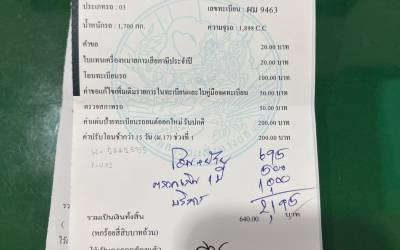 ประเภทรถ : 03 เลขทะเบียน : ผม 9463
น้ำหนักรถ : 1,700 กก. ความจุรถ : 1,898 C.C
ค่าขอ 20.00 บาท
ใบแทนเครื่องหมายการเสียภาษีประจำปี 20.00 บาท
โอนทะเบียนรถ 100.00 บาท
ค่าขอแก้ไขเพิ่มเติมรายการในทะเบียนและใบคู่มือจดทะเบียน 50.00 บาท
ตรวจสภาพรถ 50.00 บาท
ค่าแผ่นป้ายทะเบียนรถยนต์ออกใหม่ รับปกติ 200.00 บาท
ค่าปรับโอนช้ากว่า 15 วัน (ม.17) ช่วงที่ 1 200.00 บาท
695
500
1,000
บริการ
2,195
รวมเป็นเงินทั้งสิ้น 640.00 บาท
(หกร้อยสี่สิบบาทถ้วน)